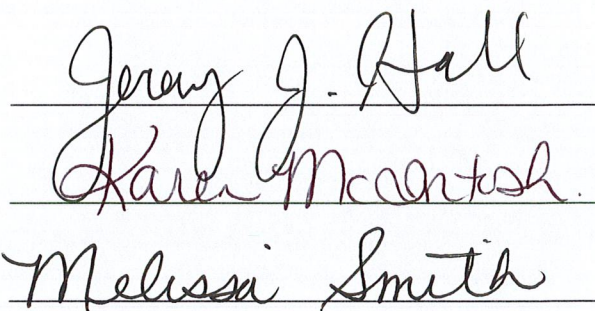 Jeremy J. Hall
Karen McIntosh
Melissa Smith